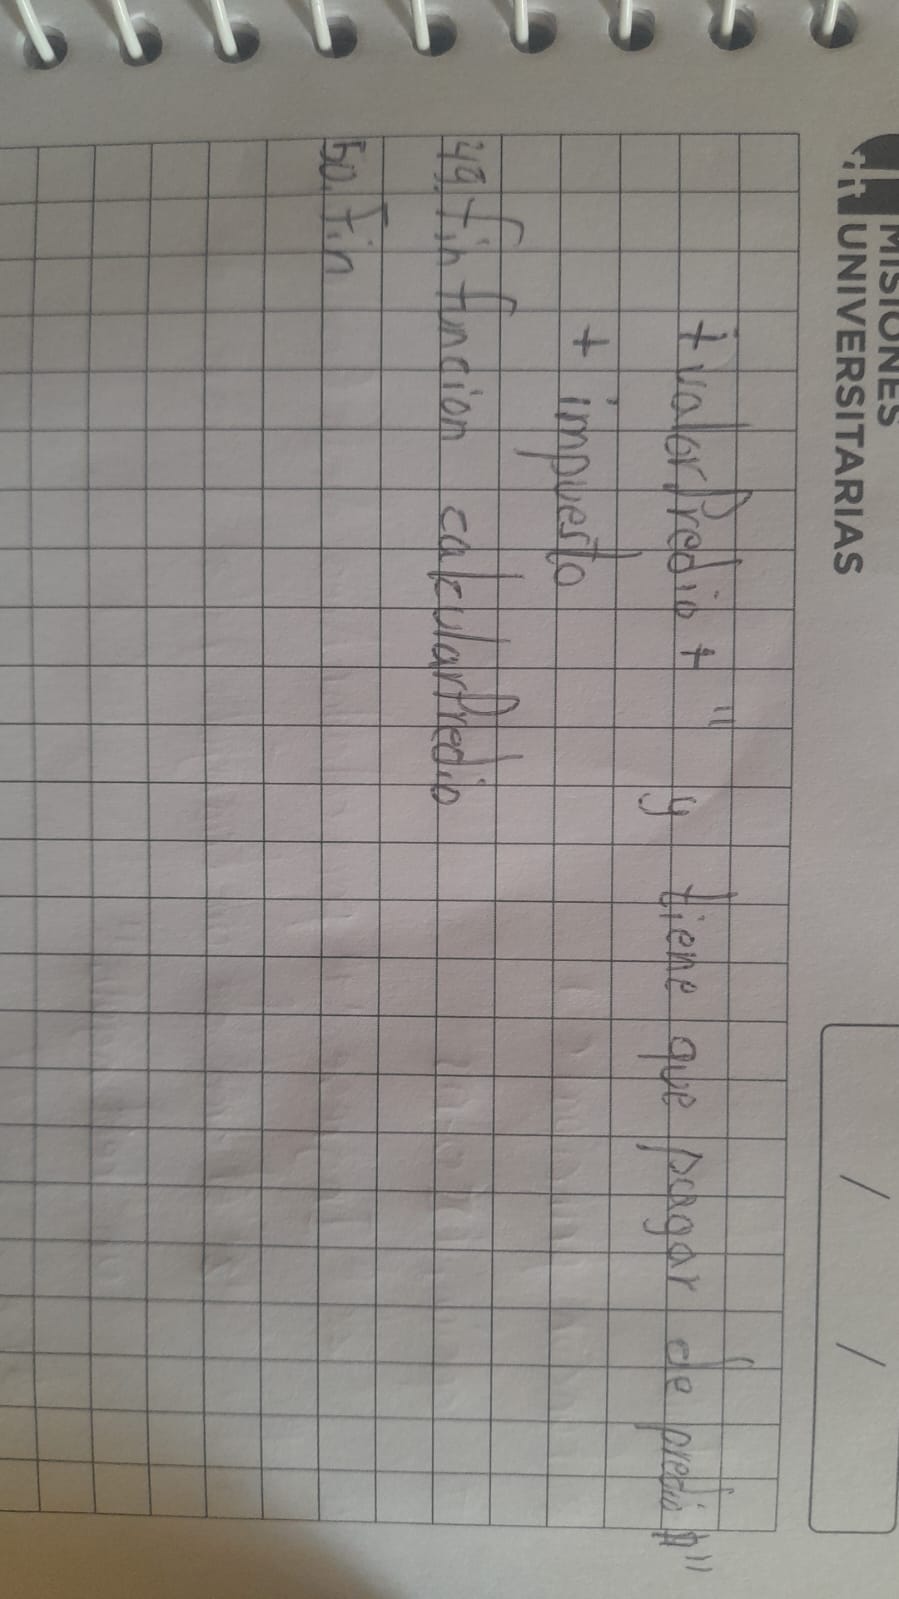 MISIONES
UNIVERSITARIAS
/ /
+ valorPredio + " y tiene que pagar de predio"
+ impuesto
49. fin funcion calcularPredio
50. Fin